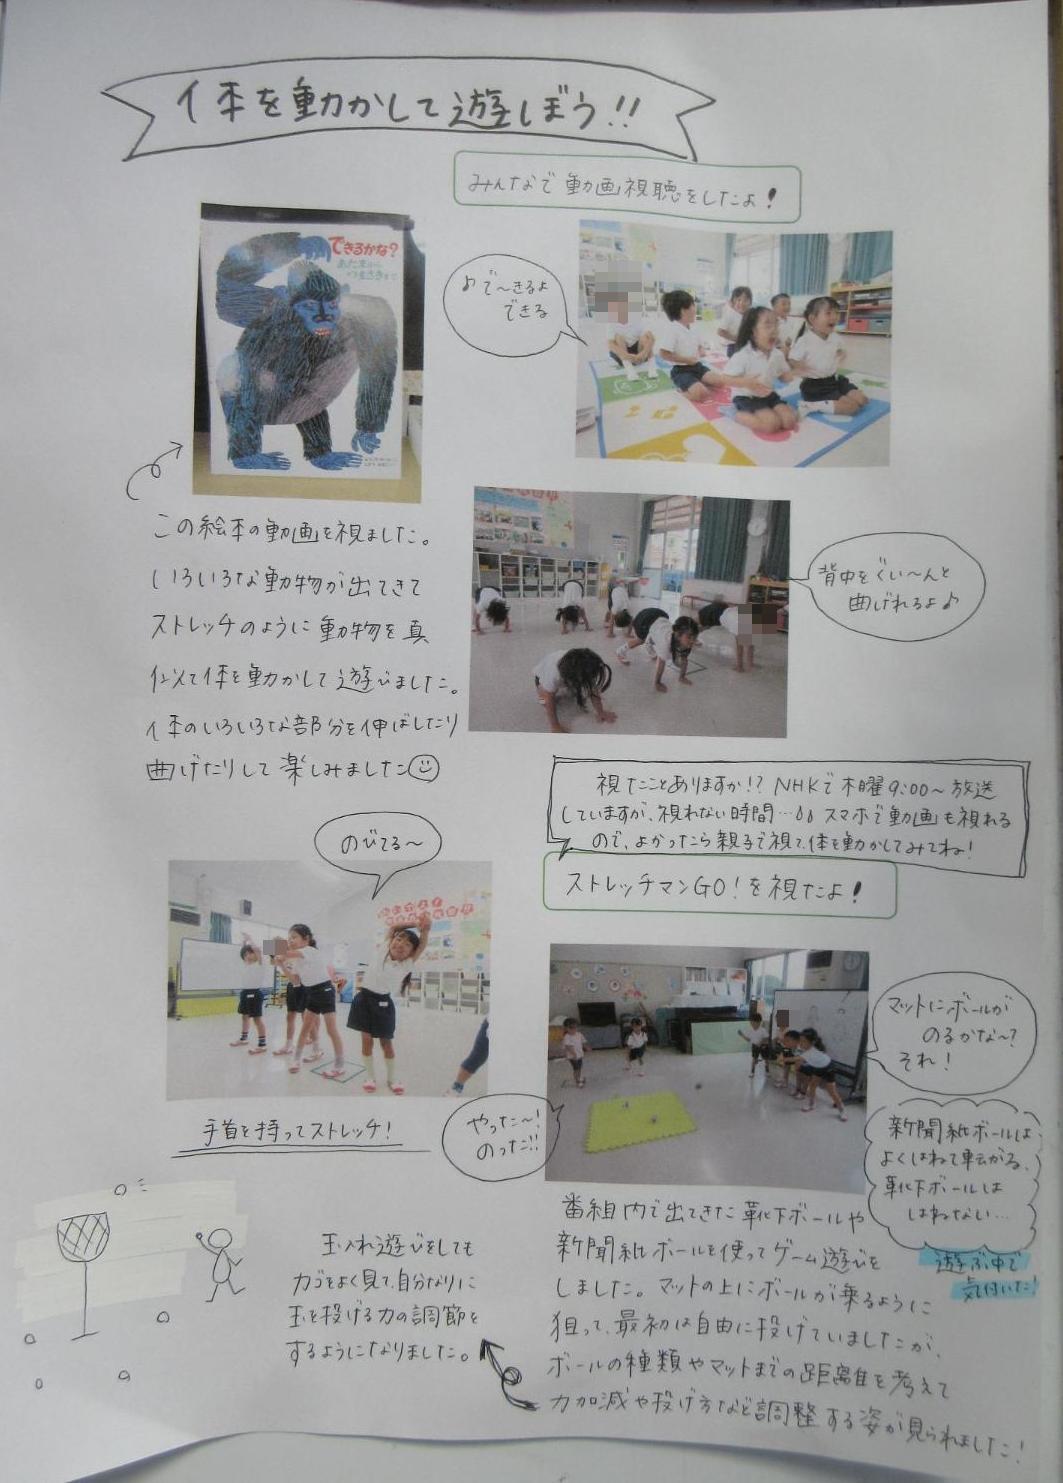 体を動かして遊しぼう!!
みんなで動画視聴をしたよ!
できるかな?
あたまから
つまさきまで
♪で〜きるよ
できる
この絵本の動画を視ました。
いろいろな動物が出てきて
ストレッチのように動物を真
似て体を動かして遊びました。
体のいろいろな部分を伸ばしたり
曲げたりして楽しみました
背中をぐい〜んと
曲げれるよ♪
視たことありますか!? NHKで木曜9:00〜放送
していますが、視れない時間… スマホで動画も視れる
ので、よかったら親子で視て、体を動かしてみてね!
ストレッチマンGO!を視たよ!
のびてる〜
手首を持ってストレッチ!
マットにボールが
のるかな〜?
それ!
やったー!
のった!!
新聞紙ボールは
よくはねて転がる、
靴下ボールは
はねない…
遊ぶ中で
気付いた!
番組内で出てきた靴下ボールや
新聞紙ボールを使ってゲーム遊びを
しました。マットの上にボールが乗るように
狙って、最初は自由に投げていましたが、
ボールの種類やマットまでの距離を考えて
力加減や投げ方など調整する姿が見られました!
玉入れ遊びをしても
カゴをよく見て、自分なりに
玉を投げる力の調節を
するようになりました。